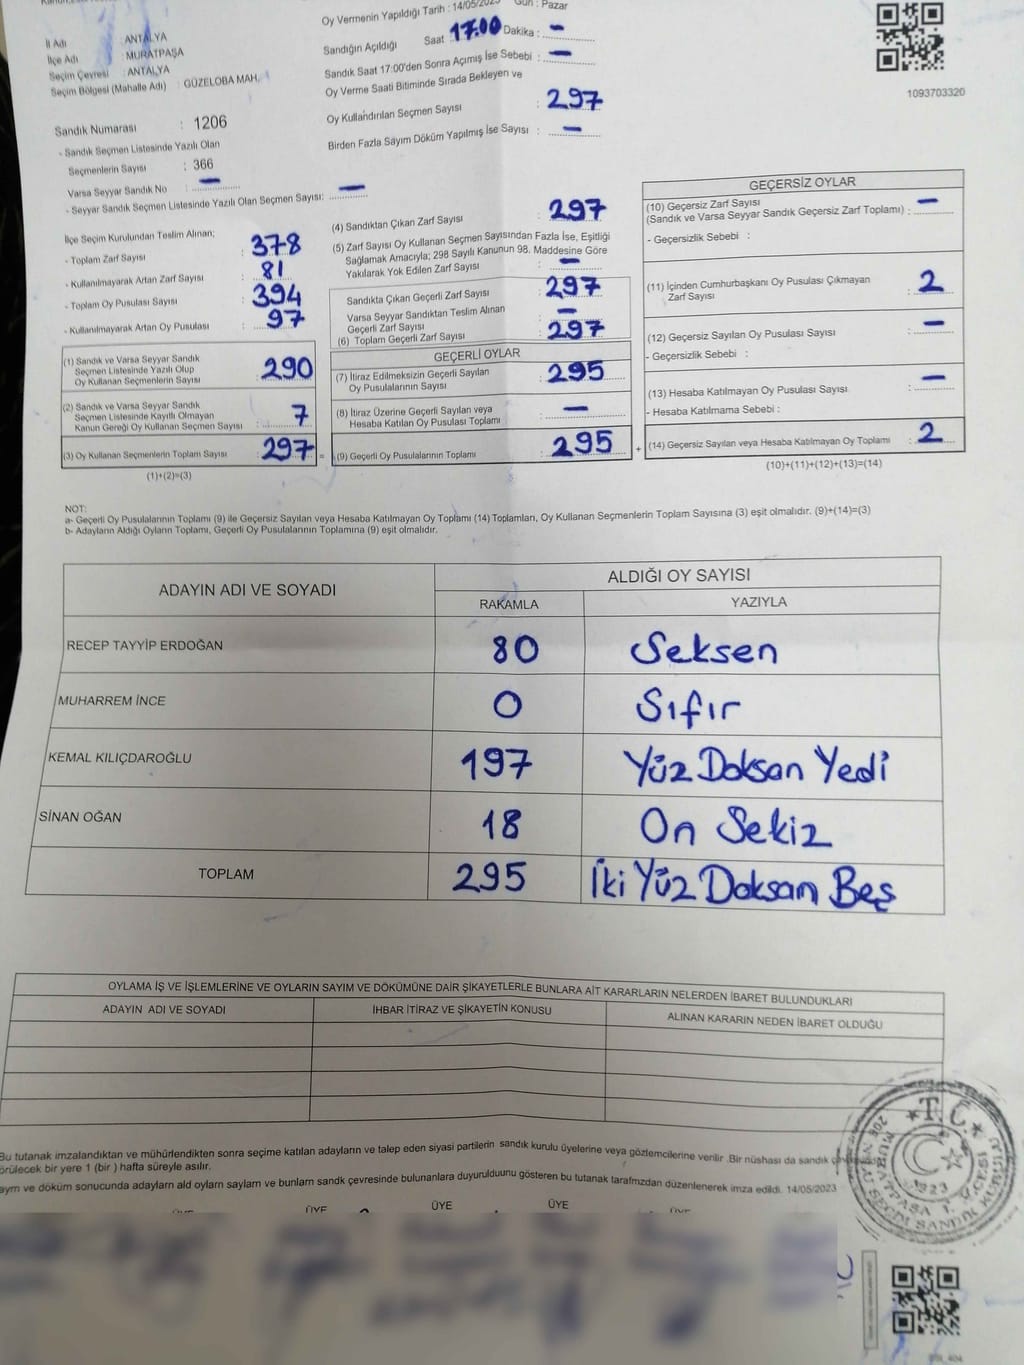 Oy Vermenin Yapıldığı Tarih : 14/05/2023 Gün : Pazar
İl Adı : ANTALYA
İlçe Adı : MURATPAŞA
Seçim Çevresi : ANTALYA
Seçim Bölgesi (Mahalle Adı) : GÜZELOBA MAH.
Sandığın Açıldığı Saat 17.00 Dakika : –
Sandık Saat 17:00'den Sonra Açımış İse Sebebi : –
Oy Verme Saati Bitiminde Sırada Bekleyen ve
Oy Kullandırılan Seçmen Sayısı : 297
Birden Fazla Sayım Döküm Yapılmış İse Sayısı : –
1093703320
Sandık Numarası : 1206
- Sandık Seçmen Listesinde Yazılı Olan
Seçmenlerin Sayısı : 366
Varsa Seyyar Sandık No : –
- Seyyar Sandık Seçmen Listesinde Yazılı Olan Seçmen Sayısı: –
İlçe Seçim Kurulundan Teslim Alınan;
- Toplam Zarf Sayısı : 378
- Kullanılmayarak Artan Zarf Sayısı : 81
- Toplam Oy Pusulası Sayısı : 394
- Kullanılmayarak Artan Oy Pusulası : 97
(1) Sandık ve Varsa Seyyar Sandık
Seçmen Listesinde Yazılı Olup
Oy Kullanan Seçmenlerin Sayısı : 290
(2) Sandık ve Varsa Seyyar Sandık
Seçmen Listesinde Kayıtlı Olmayan
Kanun Gereği Oy Kullanan Seçmen Sayısı : 7
(3) Oy Kullanan Seçmenlerin Toplam Sayısı : 297 =
(1)+(2)=(3)
(4) Sandıktan Çıkan Zarf Sayısı : 297
(5) Zarf Sayısı Oy Kullanan Seçmen Sayısından Fazla İse, Eşitliği
Sağlamak Amacıyla; 298 Sayılı Kanunun 98. Maddesine Göre
Yakılarak Yok Edilen Zarf Sayısı : –
Sandıkta Çıkan Geçerli Zarf Sayısı : 297
Varsa Seyyar Sandıktan Teslim Alınan
Geçerli Zarf Sayısı : –
(6) Toplam Geçerli Zarf Sayısı : 297
GEÇERLİ OYLAR
(7) İtiraz Edilmeksizin Geçerli Sayılan
Oy Pusulalarının Sayısı : 295
(8) İtiraz Üzerine Geçerli Sayılan veya
Hesaba Katılan Oy Pusulası Toplamı : –
(9) Geçerli Oy Pusulalarının Toplamı : 295 +
GEÇERSİZ OYLAR
(10) Geçersiz Zarf Sayısı
(Sandık ve Varsa Seyyar Sandık Geçersiz Zarf Toplamı) : –
- Geçersizlik Sebebi :
(11) İçinden Cumhurbaşkanı Oy Pusulası Çıkmayan
Zarf Sayısı : 2
(12) Geçersiz Sayılan Oy Pusulası Sayısı : –
- Geçersizlik Sebebi :
(13) Hesaba Katılmayan Oy Pusulası Sayısı : –
- Hesaba Katılmama Sebebi :
(14) Geçersiz Sayılan veya Hesaba Katılmayan Oy Toplamı : 2
(10)+(11)+(12)+(13)=(14)
NOT:
a- Geçerli Oy Pusulalarının Toplamı (9) ile Geçersiz Sayılan veya Hesaba Katılmayan Oy Toplamı (14) Toplamları, Oy Kullanan Seçmenlerin Toplam Sayısına (3) eşit olmalıdır. (9)+(14)=(3)
b- Adayların Aldığı Oyların Toplamı, Geçerli Oy Pusulalarının Toplamına (9) eşit olmalıdır.
ADAYIN ADI VE SOYADI ALDIĞI OY SAYISI
RAKAMLA YAZIYLA
RECEP TAYYİP ERDOĞAN 80 Seksen
MUHARREM İNCE 0 Sıfır
KEMAL KILIÇDAROĞLU 197 Yüz Doksan Yedi
SİNAN OĞAN 18 On Sekiz
TOPLAM 295 İki Yüz Doksan Beş
OYLAMA İŞ VE İŞLEMLERİNE VE OYLARIN SAYIM VE DÖKÜMÜNE DAİR ŞİKAYETLERLE BUNLARA AİT KARARLARIN NELERDEN İBARET BULUNDUKLARI
ADAYIN ADI VE SOYADI İHBAR İTİRAZ VE ŞİKAYETİN KONUSU ALINAN KARARIN NEDEN İBARET OLDUĞU
Bu tutanak imzalandıktan ve mühürlendikten sonra seçime katılan adayların ve talep eden siyasi partilerin sandık kurulu üyelerine veya gözlemcilerine verilir .Bir nüshası da sandık
örülecek bir yere 1 (bir ) hafta süreyle asılır.
ayım ve döküm sonucunda adayların ald oyların sayılam ve bunların sandk çevresinde bulunanlara duyurulduunu gösteren bu tutanak tarafmzdan düzenlenerek imza edildi. 14/05/2023
ÜYE ÜYE ÜYE
T.C.
1923
MURATPAŞA 1. İLÇESİ
SEÇİM SANDIK KURULU